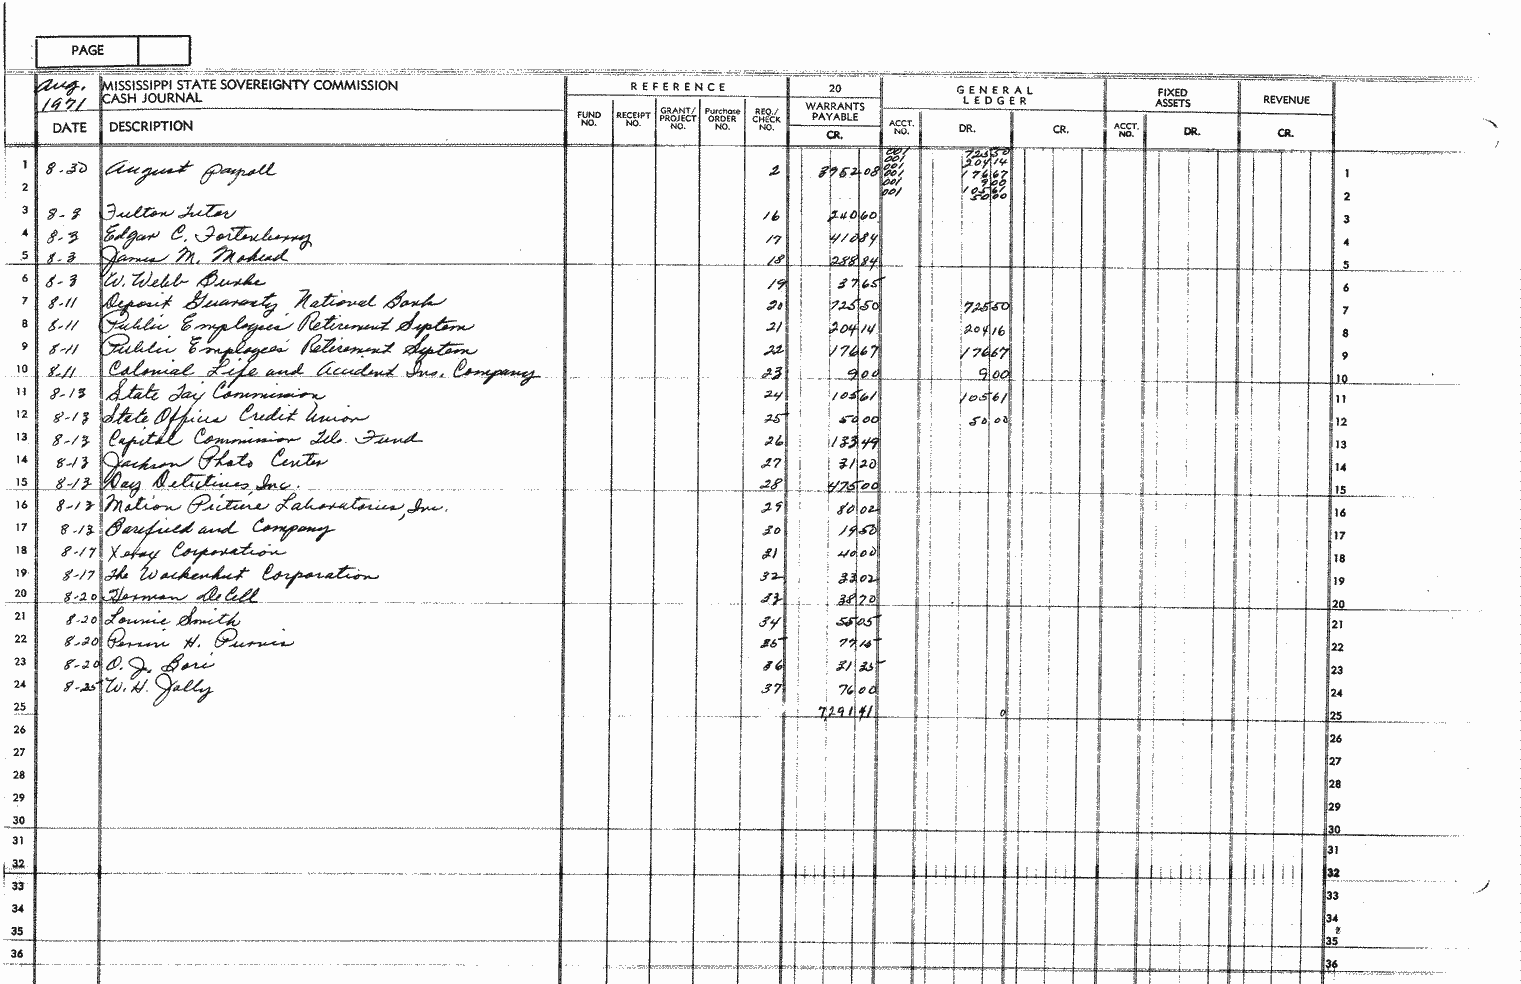 PAGE
Aug. 1971 MISSISSIPPI STATE SOVEREIGNTY COMMISSION
CASH JOURNAL
REFERENCE 20 WARRANTS PAYABLE GENERAL LEDGER FIXED ASSETS REVENUE
DATE DESCRIPTION FUND NO. RECEIPT NO. GRANT/PROJECT NO. Purchase ORDER NO. REQ./CHECK NO. CR. ACCT. NO. DR. CR. ACCT. NO. DR. CR.
001 725 50
001 204 14
1 8-30 August Payroll 2 3952 08 001 176 67 1
001 9 00
2 001 105 61 2
50 00
3 8-3 Fulton Tutor 16 240 60 3
4 8-3 Edgar C. Fortenberry 17 410 84 4
5 8-3 James M. Mohead 18 288 84 5
6 8-3 W. Webb Burke 19 37 65 6
7 8-11 Deposit Guaranty National Bank 20 725 50 725 50 7
8 8-11 Public Employees' Retirement System 21 204 14 204 16 8
9 8-11 Public Employees' Retirement System 22 176 67 176 67 9
10 8-11 Colonial Life and Accident Ins. Company 23 9 00 9 00 10
11 8-13 State Tax Commission 24 105 61 105 61 11
12 8-13 State Offices Credit Union 25 50 00 50 00 12
13 8-13 Capital Commission Tele. Fund 26 133 49 13
14 8-13 Jackson Photo Center 27 31 20 14
15 8-13 Day Detectives, Inc. 28 475 00 15
16 8-13 Motion Picture Laboratories, Inc. 29 80 02 16
17 8-13 Barefield and Company 30 19 50 17
18 8-17 Xerox Corporation 31 40 00 18
19 8-17 The Wackenhut Corporation 32 33 02 19
20 8-20 Herman DeCell 33 38 70 20
21 8-20 Lonnie Smith 34 55 05 21
22 8-20 Perrin H. Purvis 35 77 15 22
23 8-20 O. J. Bori 36 31 35 23
24 8-25 W. H. Jolly 37 76 00 24
25 7,291 41 0 25
26 26
27 27
28 28
29 29
30 30
31 31
32 32
33 33
34 34
35 35
36 36